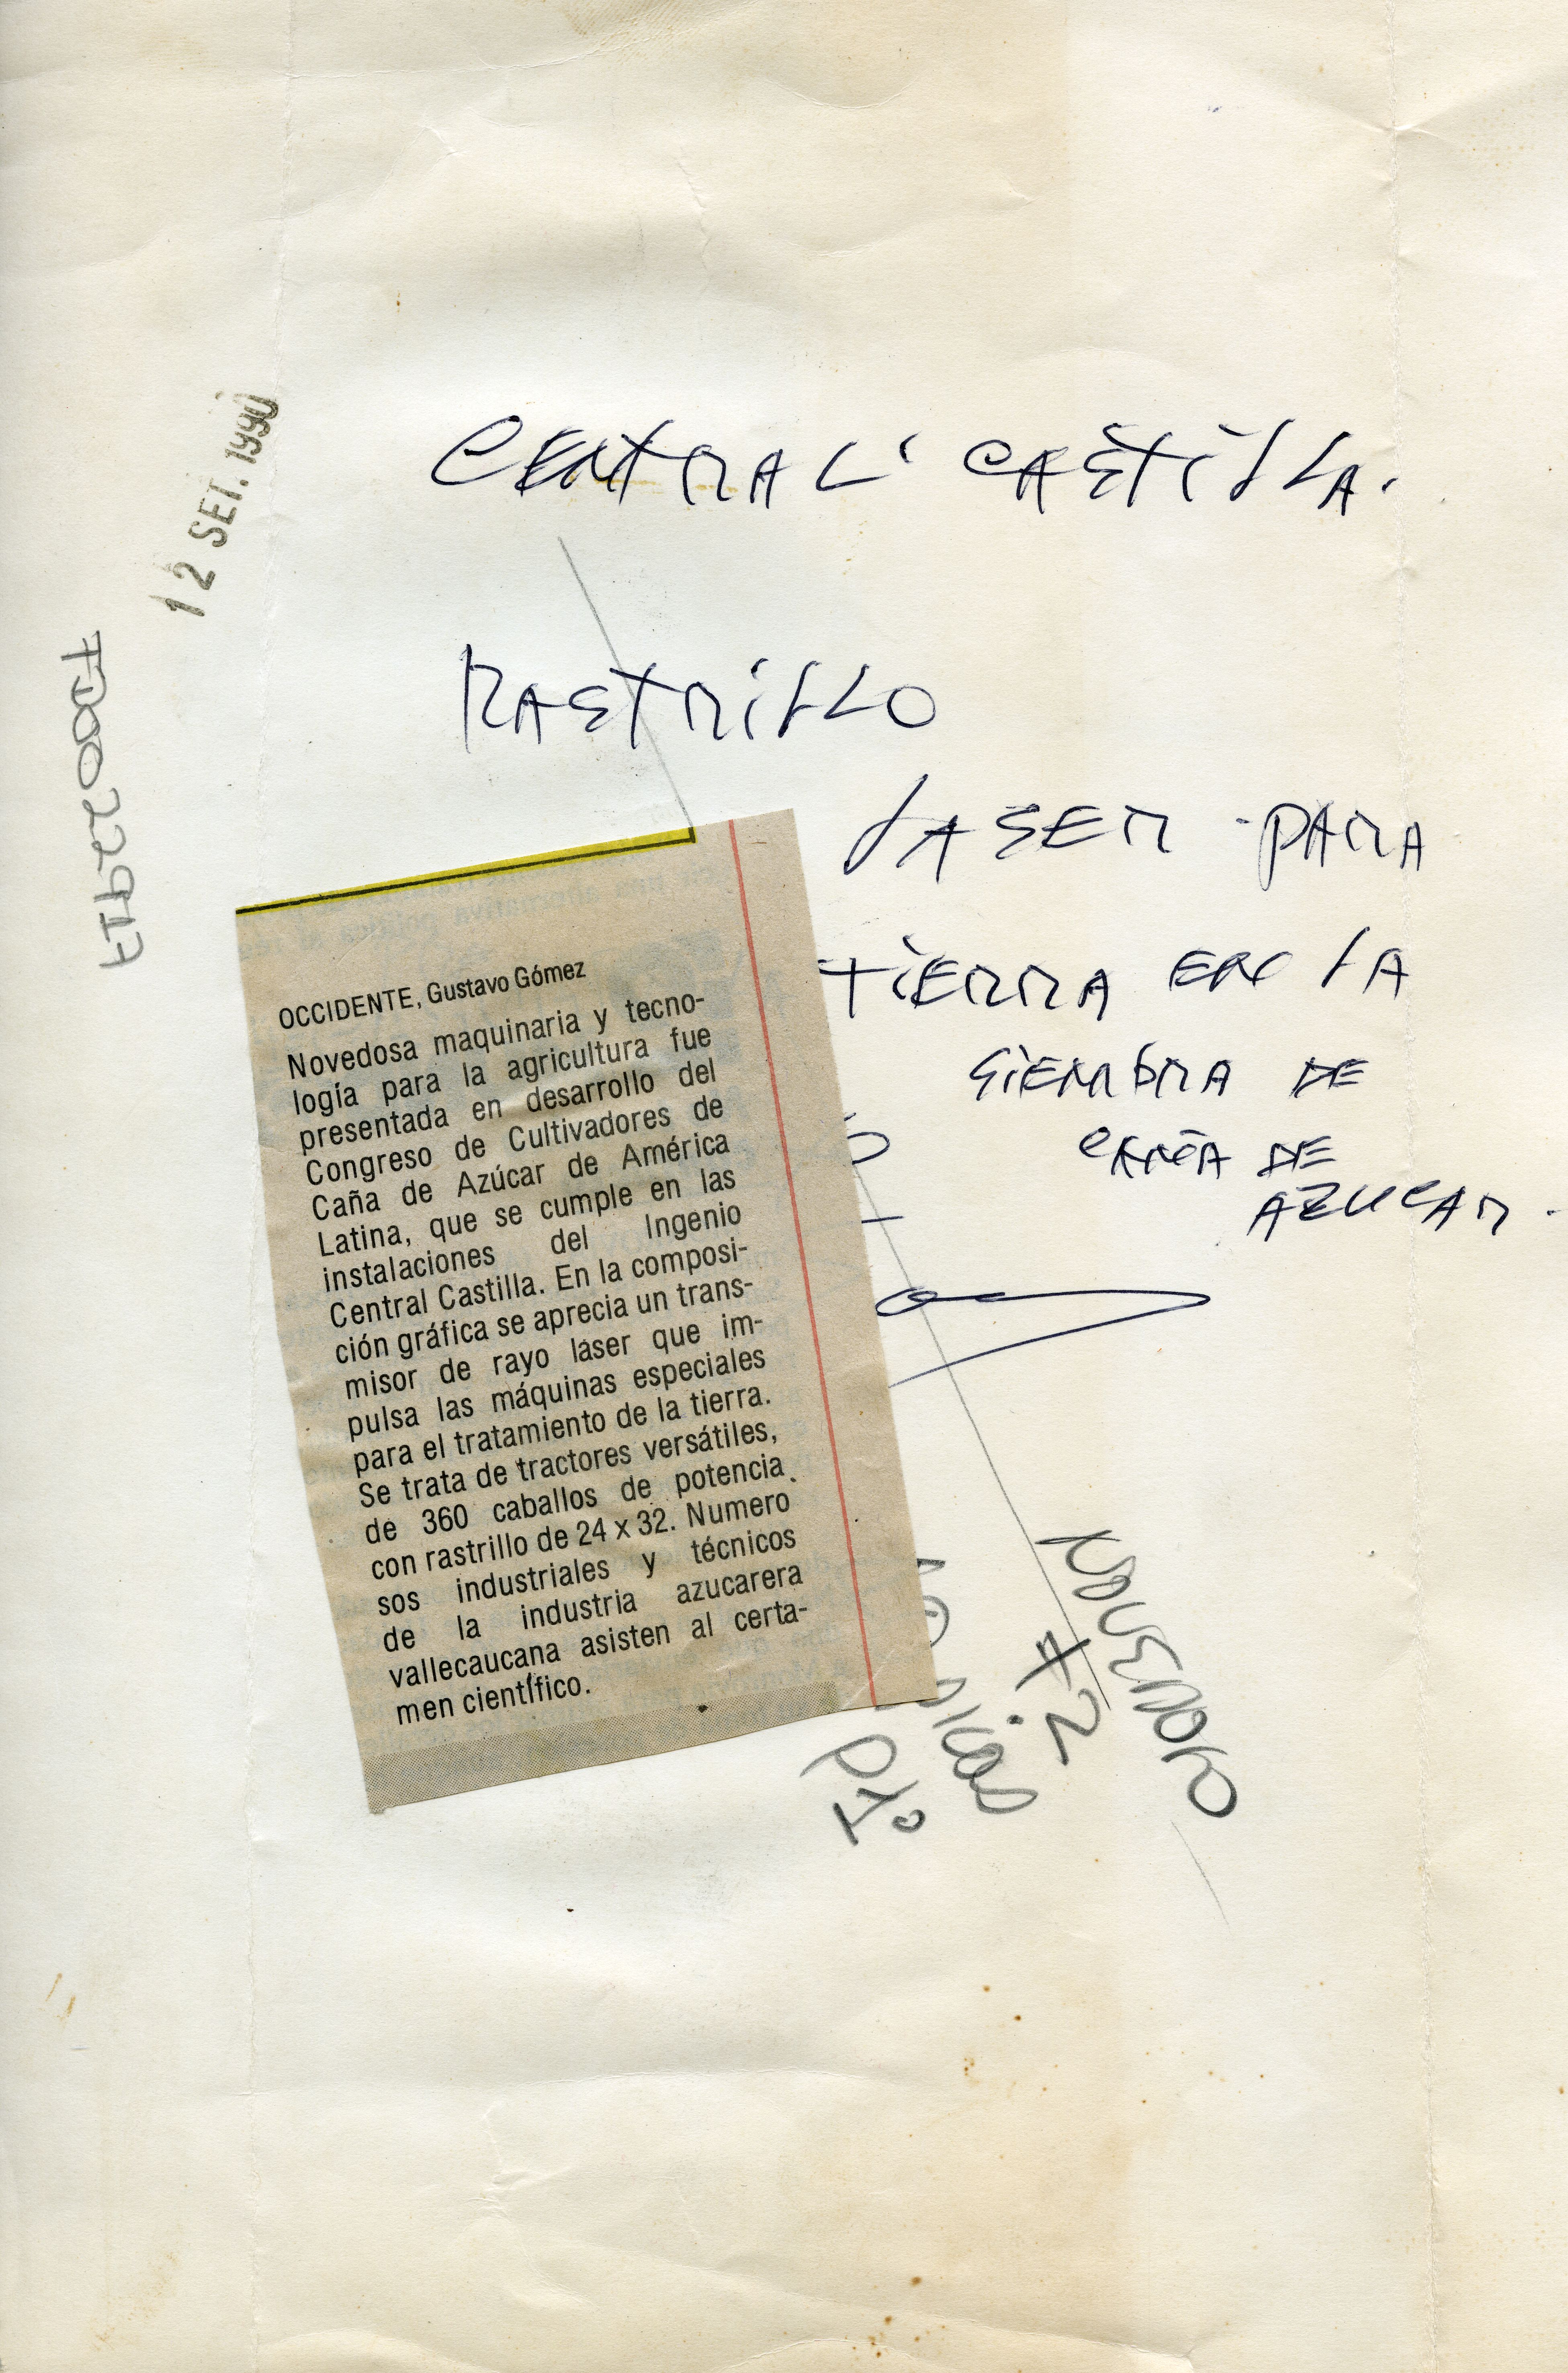 12 SET. 1990
CENTRAL CASTILLA.
RASTRILLO
LASER PARA
TIERRA EN LA
SIEMBRA DE
CAÑA DE
AZUCAR.
OCCIDENTE, Gustavo Gómez
Novedosa maquinaria y tecno-
logía para la agricultura fue
presentada en desarrollo del
Congreso de Cultivadores de
Caña de Azúcar de América
Latina, que se cumple en las
instalaciones del Ingenio
Central Castilla. En la composi-
ción gráfica se aprecia un trans-
misor de rayo láser que im-
pulsa las máquinas especiales
para el tratamiento de la tierra.
Se trata de tractores versátiles,
de 360 caballos de potencia
con rastrillo de 24 x 32. Numero
sos industriales y técnicos
de la industria azucarera
vallecaucana asisten al certa-
men científico.